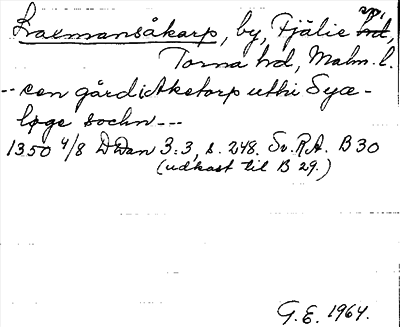 Laemansåkarp, by, Fjälie hd, sn,
Torna hd, Malm. l.
-- een gård i Aketorp uthi Syæ-
løge sochn ---
1350 4/8 DDan 3:3, s. 248. Sv.R.A. B 30
(udkast til B 29.)
G.E. 1964.